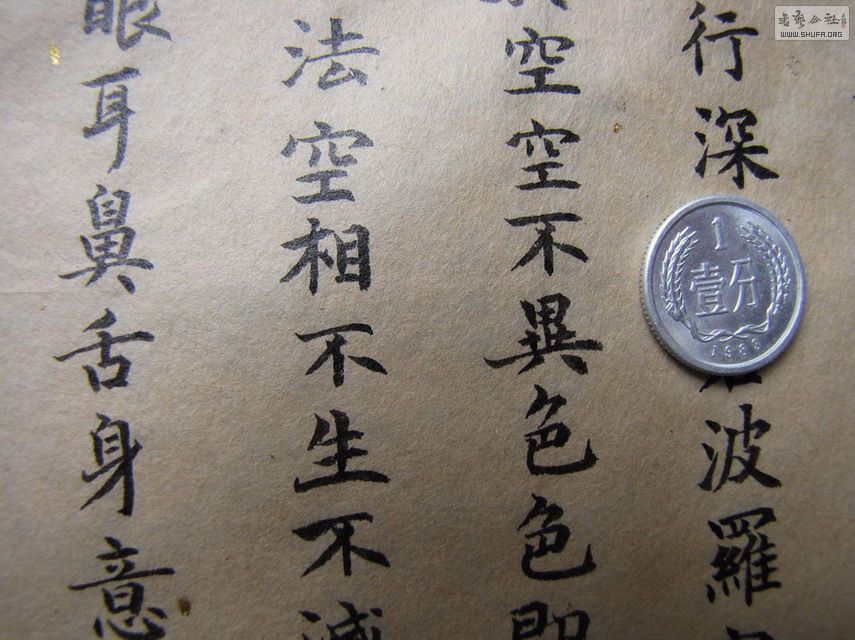 行深波羅
空空不異色色即
法空相不生不滅
眼耳鼻舌身意
1
壹分
書藝公社
WWW.SHUFA.ORG